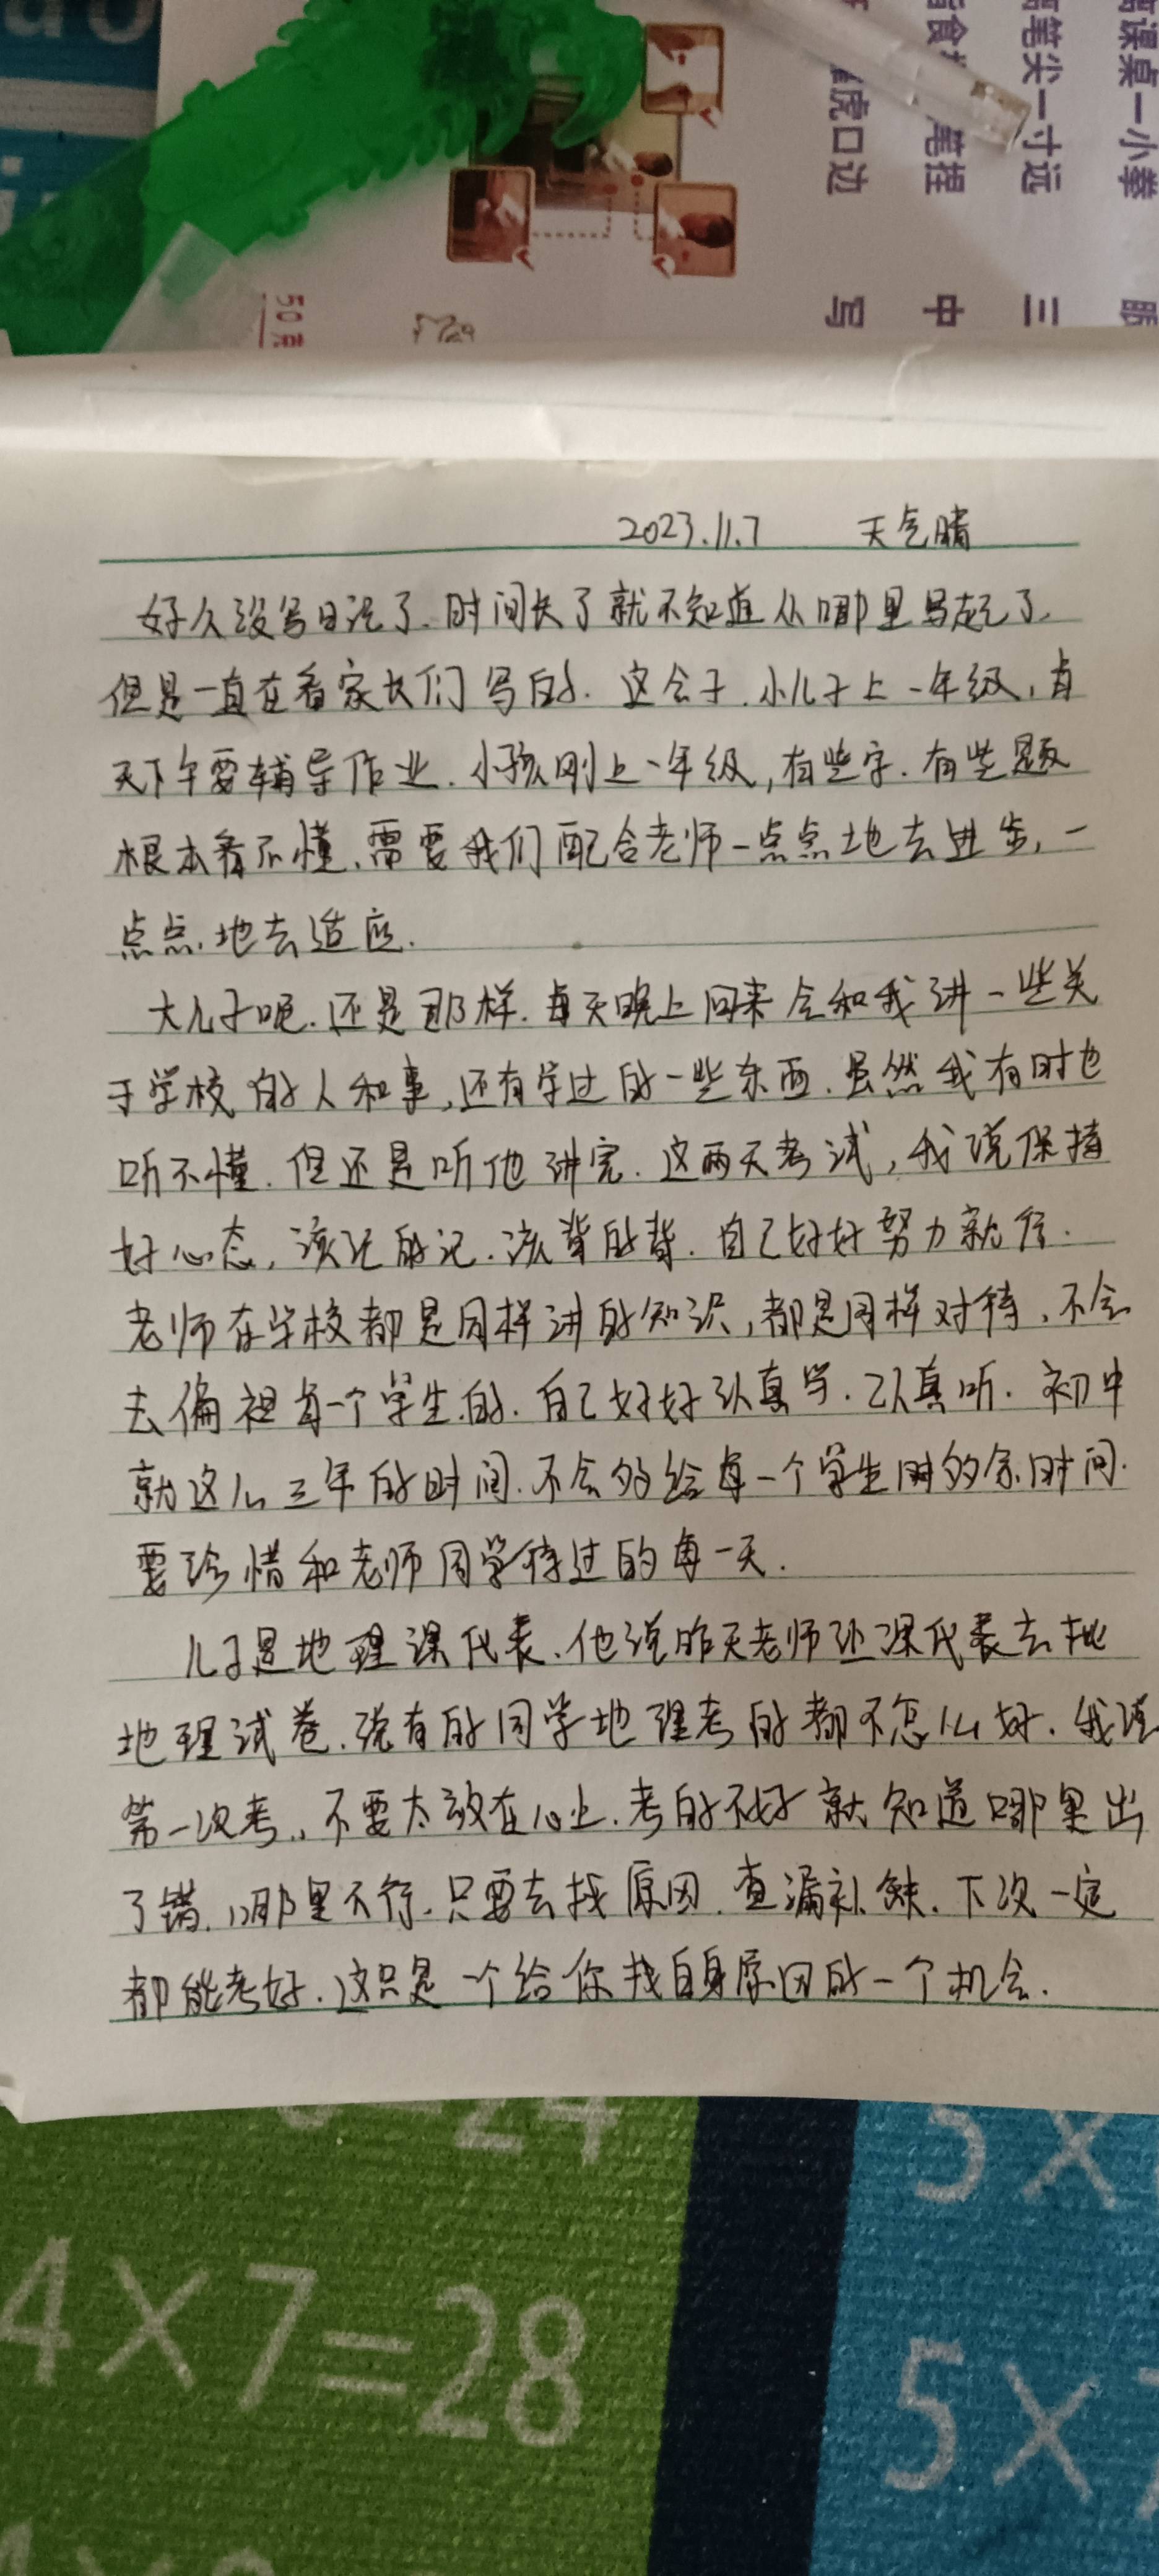 离课桌一小拳
离笔尖一寸远
笔捏
虎口边
三
中
写
50克
2023.11.7 天气晴
好久没写日记了.时间长了就不知道从哪里写起了.
但是一直在看家长们写的.这会子.小儿子上一年级,每
天下午要辅导作业.小孩刚上一年级,有些字.有些题
根本看不懂.需要我们配合老师一点点地去进步,一
点点.地去适应.
大儿子呢.还是那样.每天晚上回来会和我讲一些关
于学校的人和事,还有学过的一些东西.虽然我有时也
听不懂.但还是听他讲完.这两天考试,我说保持
好心态,该记的记.该背的背.自己好好努力就行.
老师在学校都是同样讲的知识,都是同样对待.不会
去偏袒每一个学生的.自己好好认真学.认真听.初中
就这么三年的时间.不会多给每一个学生用多余时间.
要珍惜和老师同学待过的每一天.
儿子是地理课代表.他说昨天老师让课代表去批
地理试卷.说有的同学地理考的都不怎么好.我说
第一次考.不要太放在心上.考的不好就知道哪里出
了错.哪里不行.只要去找原因.查漏补缺.下次一定
都能考好.这只是一个给你找自身原因的一个机会.
=24
5×
4×7=28
5×7